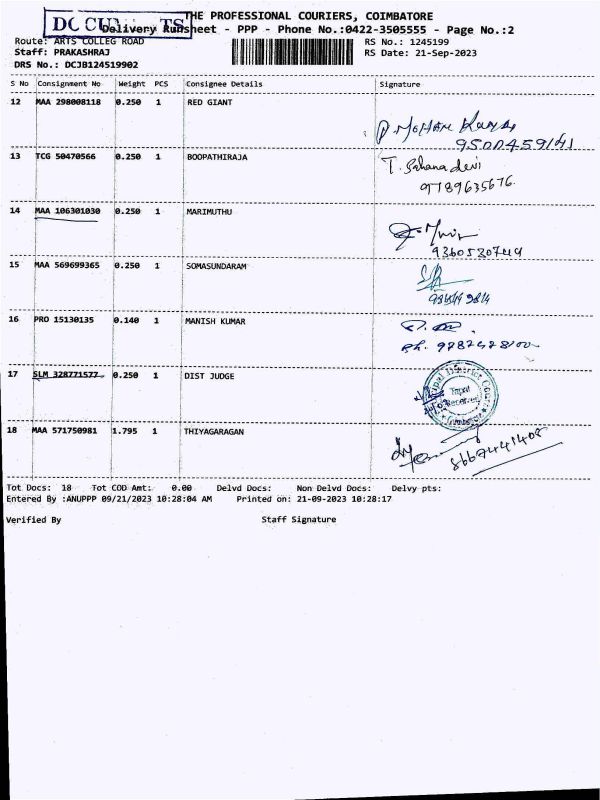 DOCUMENTS
THE PROFESSIONAL COURIERS, COIMBATORE
Delivery Runsheet - PPP - Phone No.:0422-3505555 - Page No.:2
Route: ARTS COLLEG ROAD RS No.: 1245199
Staff: PRAKASHRAJ RS Date: 21-Sep-2023
DRS No.: DCJB124519902
S No Consignment No Weight PCS Consignee Details Signature
12 MAA 298008118 0.250 1 RED GIANT
P. Mohan Kumar
9500459141
13 TCG 50470566 0.250 1 BOOPATHIRAJA
T. Sahana devi
9789635676.
14 MAA 106301030 0.250 1 MARIMUTHU
9360530749
15 MAA 569699365 0.250 1 SOMASUNDARAM
16 PRO 15130135 0.140 1 MANISH KUMAR
Ph.
17 SLM 328771577 0.250 1 DIST JUDGE
Tapal
Received
18 MAA 571750981 1.795 1 THIYAGARAGAN
8667441408
Tot Docs: 18 Tot COD Amt: 0.00 Delvd Docs: Non Delvd Docs: Delvy pts:
Entered By :ANUPPP 09/21/2023 10:28:04 AM Printed on: 21-09-2023 10:28:17
Verified By Staff Signature